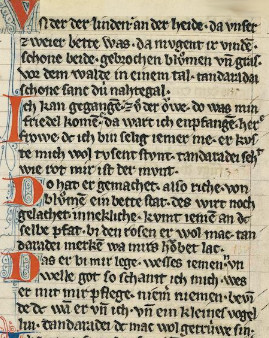 Vnder der linden an der heide. da vnser
zweier bette was. da mvgent ir vinde.
schone beide. gebrochen blůmen vn̄ gras.
vor dem walde in einem tal. tandaradai
schone sanc dú nahtegal.
Ich kan gegangē. zů der ǒwe. do was min
friedel komē. da wart ich enpfangē. here
frowe. de ich bin selig iemer me. er kus
te mich wol tvsent stvnt. tandaradei seht
wie rot mir ist der mvnt.
Do hat er gemachet. also riche. von
blůmē ein bette stat. des wirt noch
gelachet innekliche. kvmt iemē an de
selbe pfat. bi den rosen er wol mac. tan
daradei merkē wa mirs hǒbet lac.
Das er bi mir lege. wesses iemen. vn̄
welle got so schamt ich mich. wes
er mit mir pflege. niemē niemen. bevī
de de wā er vn̄ ich. vn̄ ein kleines vogel
lin. tandaradei de mac wol getrúwe sin.